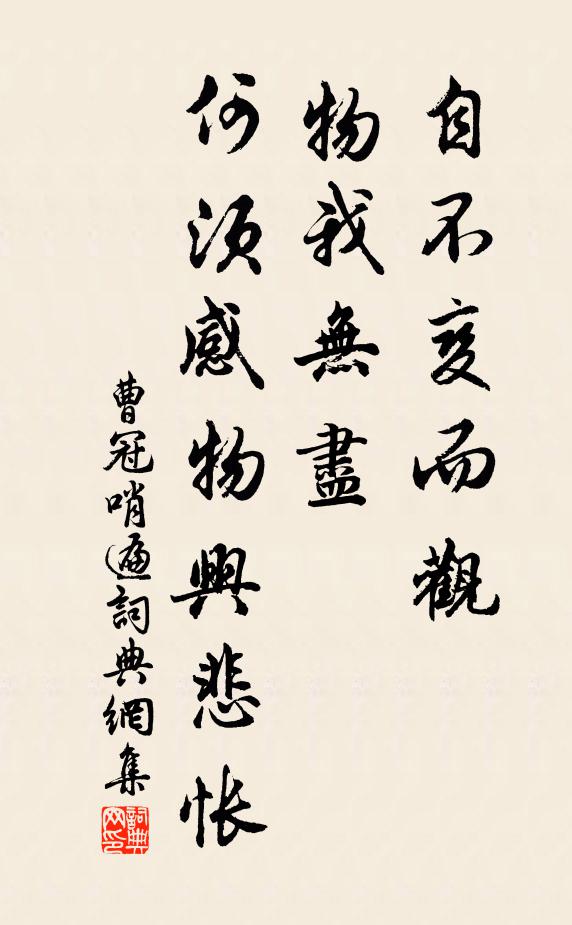 自不变而觀
物我無盡
何須感物興悲悵
曹冠哨遍詞典網集
詞典網印